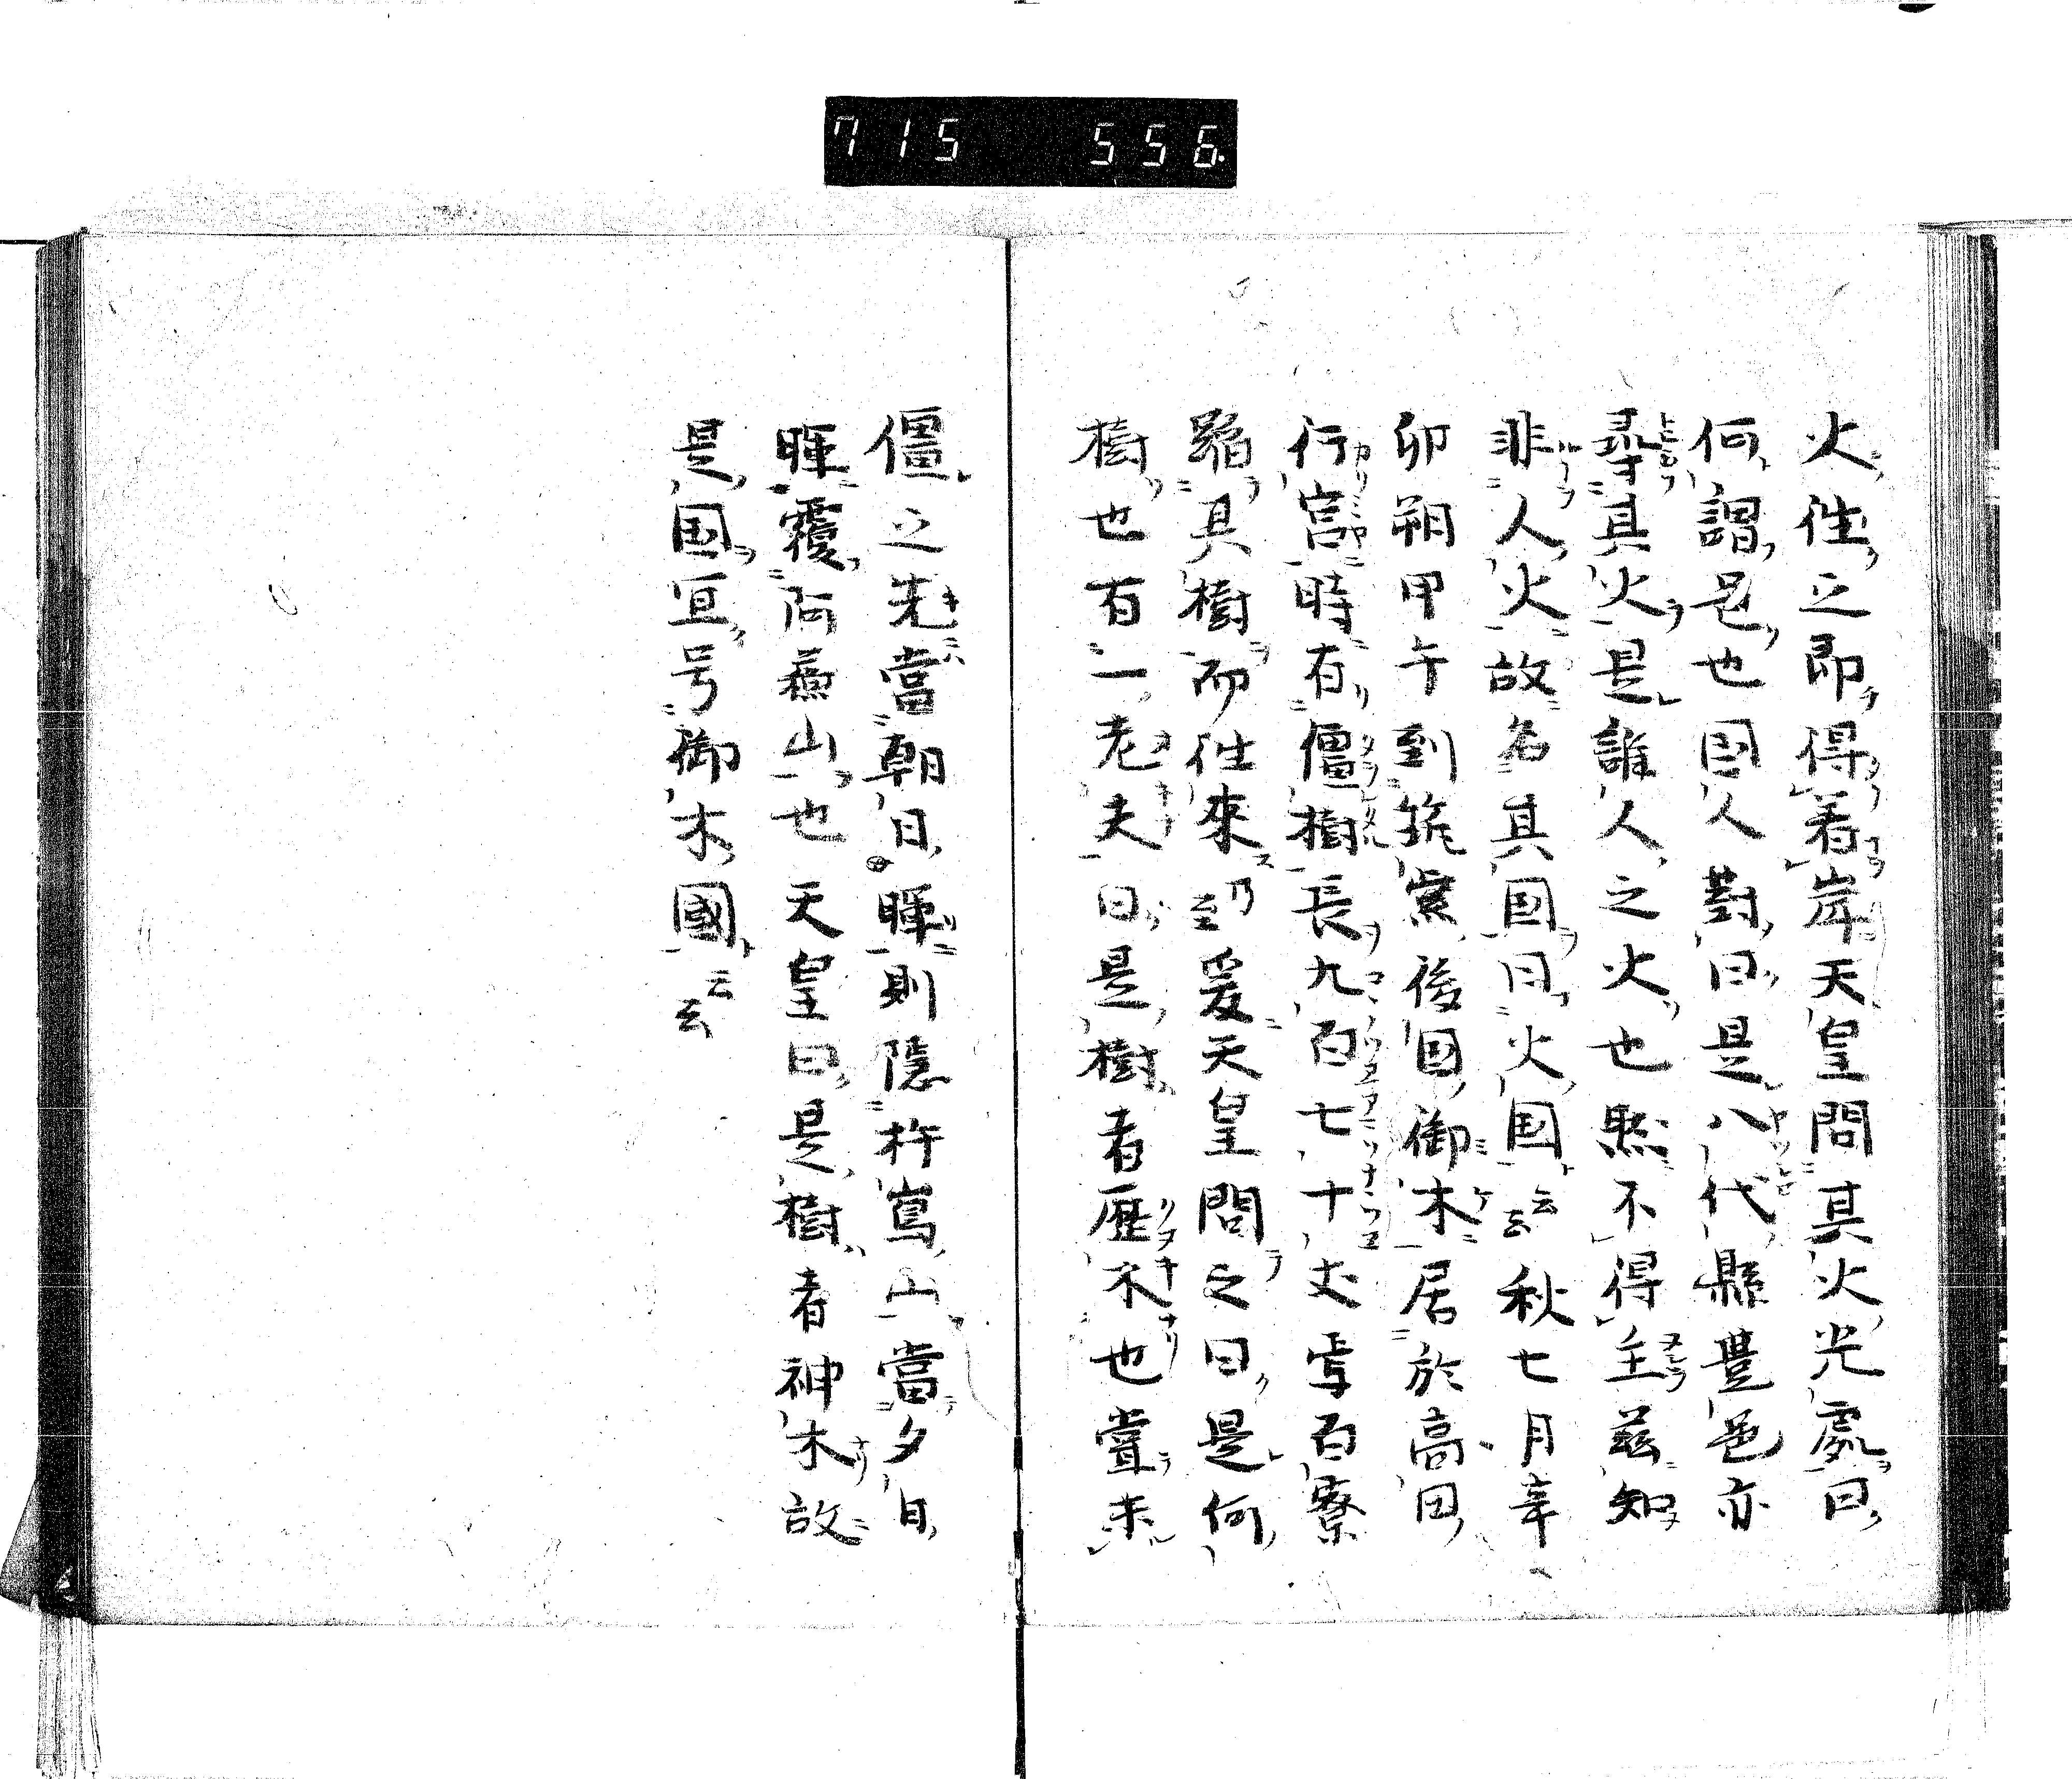 715 556
火往之即得着岸天皇問其火光處曰
何謂邑也国人對曰是八代縣豊邑亦
尋其火是誰人之火也然不得主茲知
非人火故名其国曰火国云云秋七月辛
卯朔甲午到筑紫後国御木居於高田
行宮時有僵樹長九百七十丈焉百寮
蹈其樹而往來乃至爰天皇問之曰是何
樹也有一老夫曰是樹者歴木也嘗未
僵之先當朝日暉則隠杵嶌山當夕日
暉覆阿蘇山也天皇曰是樹者神木故
是国宜号御木國云云